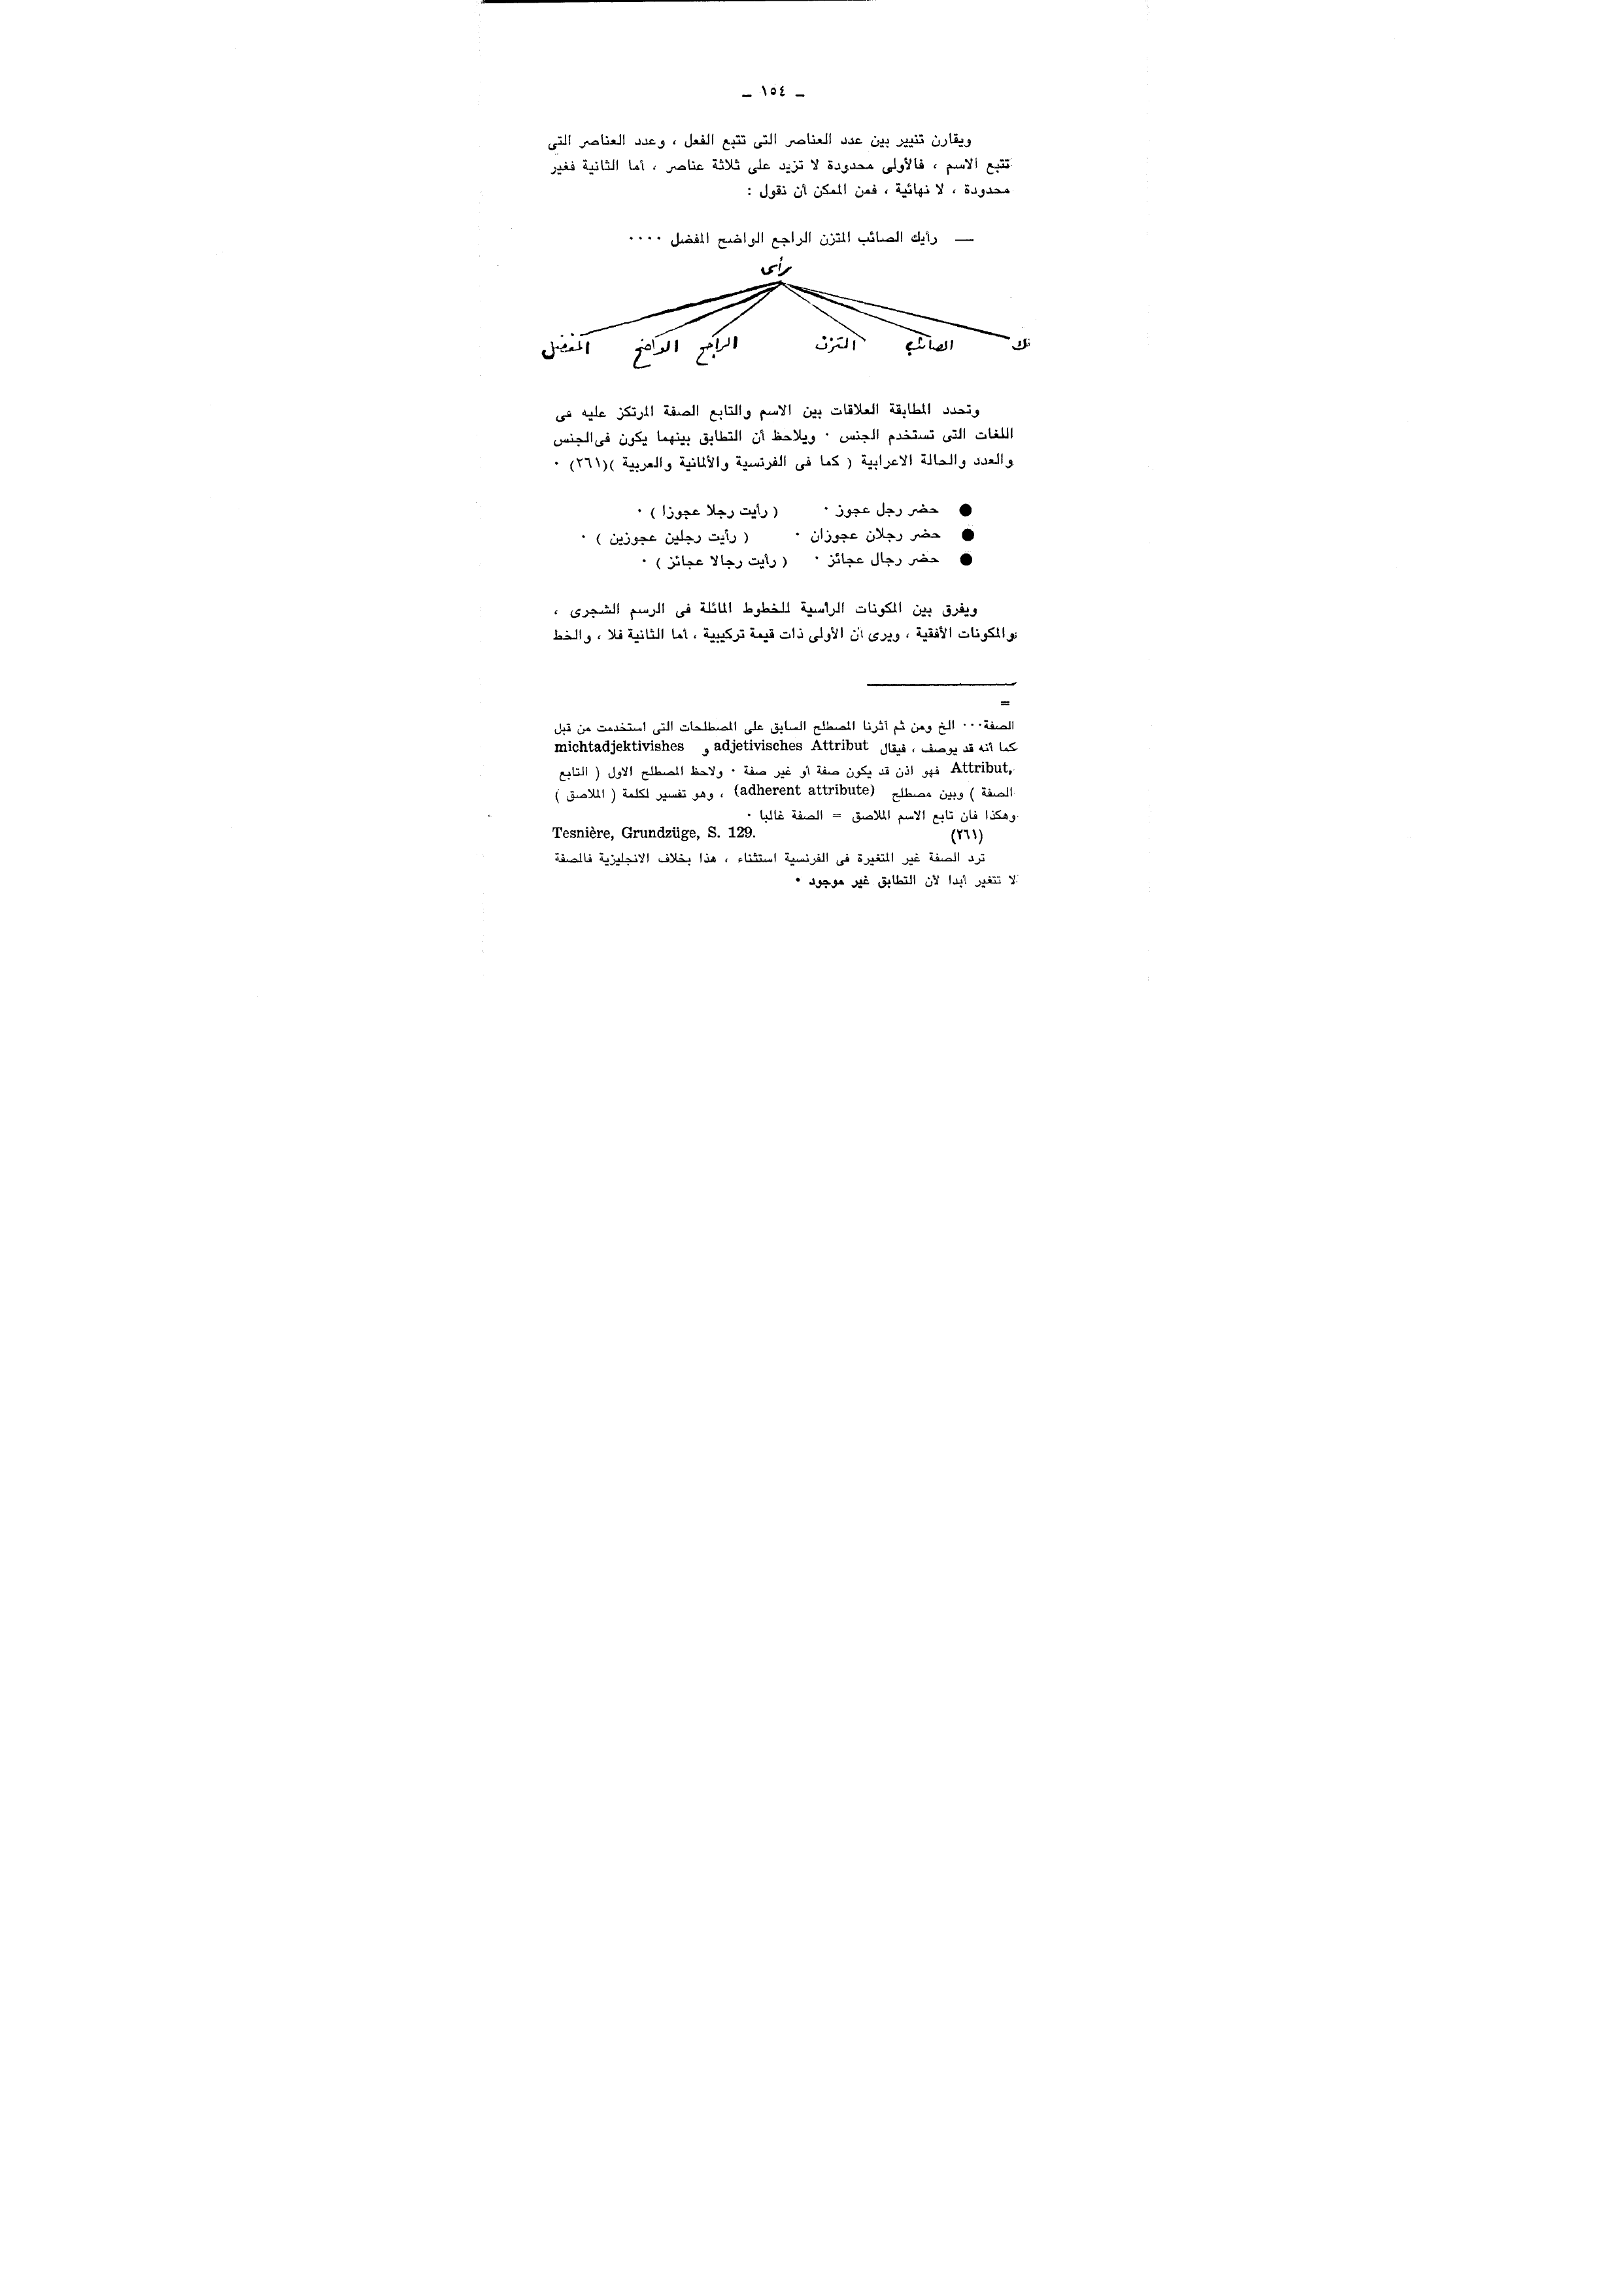 ــ ١٥٤ ــ
ويقارن تنيير بين عدد العناصر التى تتبع الفعل ، وعدد العناصر التى
تتبع الاسم ، فالأولى محدودة لا تزيد على ثلاثة عناصر ، أما الثانية فغير
محدودة ، لا نهائية ، فمن الممكن أن نقول :
— رأيك الصائب المتزن الراجع الواضح المفضل ٠٠٠٠
رأى
ك الصائب المتزن الراجح الواضح المفضل
وتحدد المطابقة العلاقات بين الاسم والتابع الصفة المرتكز عليه فى
اللغات التى تستخدم الجنس ٠ ويلاحظ أن التطابق بينهما يكون فى الجنس
والعدد والحالة الاعرابية ( كما فى الفرنسية والألمانية والعربية )(٢٦١) ٠
● حضر رجل عجوز ٠ ( رأيت رجلا عجوزا ) ٠
● حضر رجلان عجوزان ٠ ( رأيت رجلين عجوزين ) ٠
● حضر رجال عجائز ٠ ( رأيت رجالا عجائز ) ٠
ويفرق بين المكونات الرأسية للخطوط المائلة فى الرسم الشجرى ،
والمكونات الأفقية ، ويرى أن الأولى ذات قيمة تركيبية ، أما الثانية فلا ، والخط
=
الصفة ٠٠٠ الخ ومن ثم آثرنا المصطلح السابق على المصطلحات التى استخدمت من قبل
كما أنه قد يوصف ، فيقال adjetivisches Attribut و michtadjektivishes
Attribut, فهو اذن قد يكون صفة أو غير صفة ٠ ولاحظ المصطلح الاول ( التابع
الصفة ) وبين مصطلح (adherent attribute) ، وهو تفسير لكلمة ( الملاصق )
وهكذا فان تابع الاسم الملاصق = الصفة غالبا ٠
(٢٦١) Tesnière, Grundzüge, S. 129.
ترد الصفة غير المتغيرة فى الفرنسية استثناء ، هذا بخلاف الانجليزية فالصفة
لا تتغير أبدا لأن التطابق غير موجود ٠